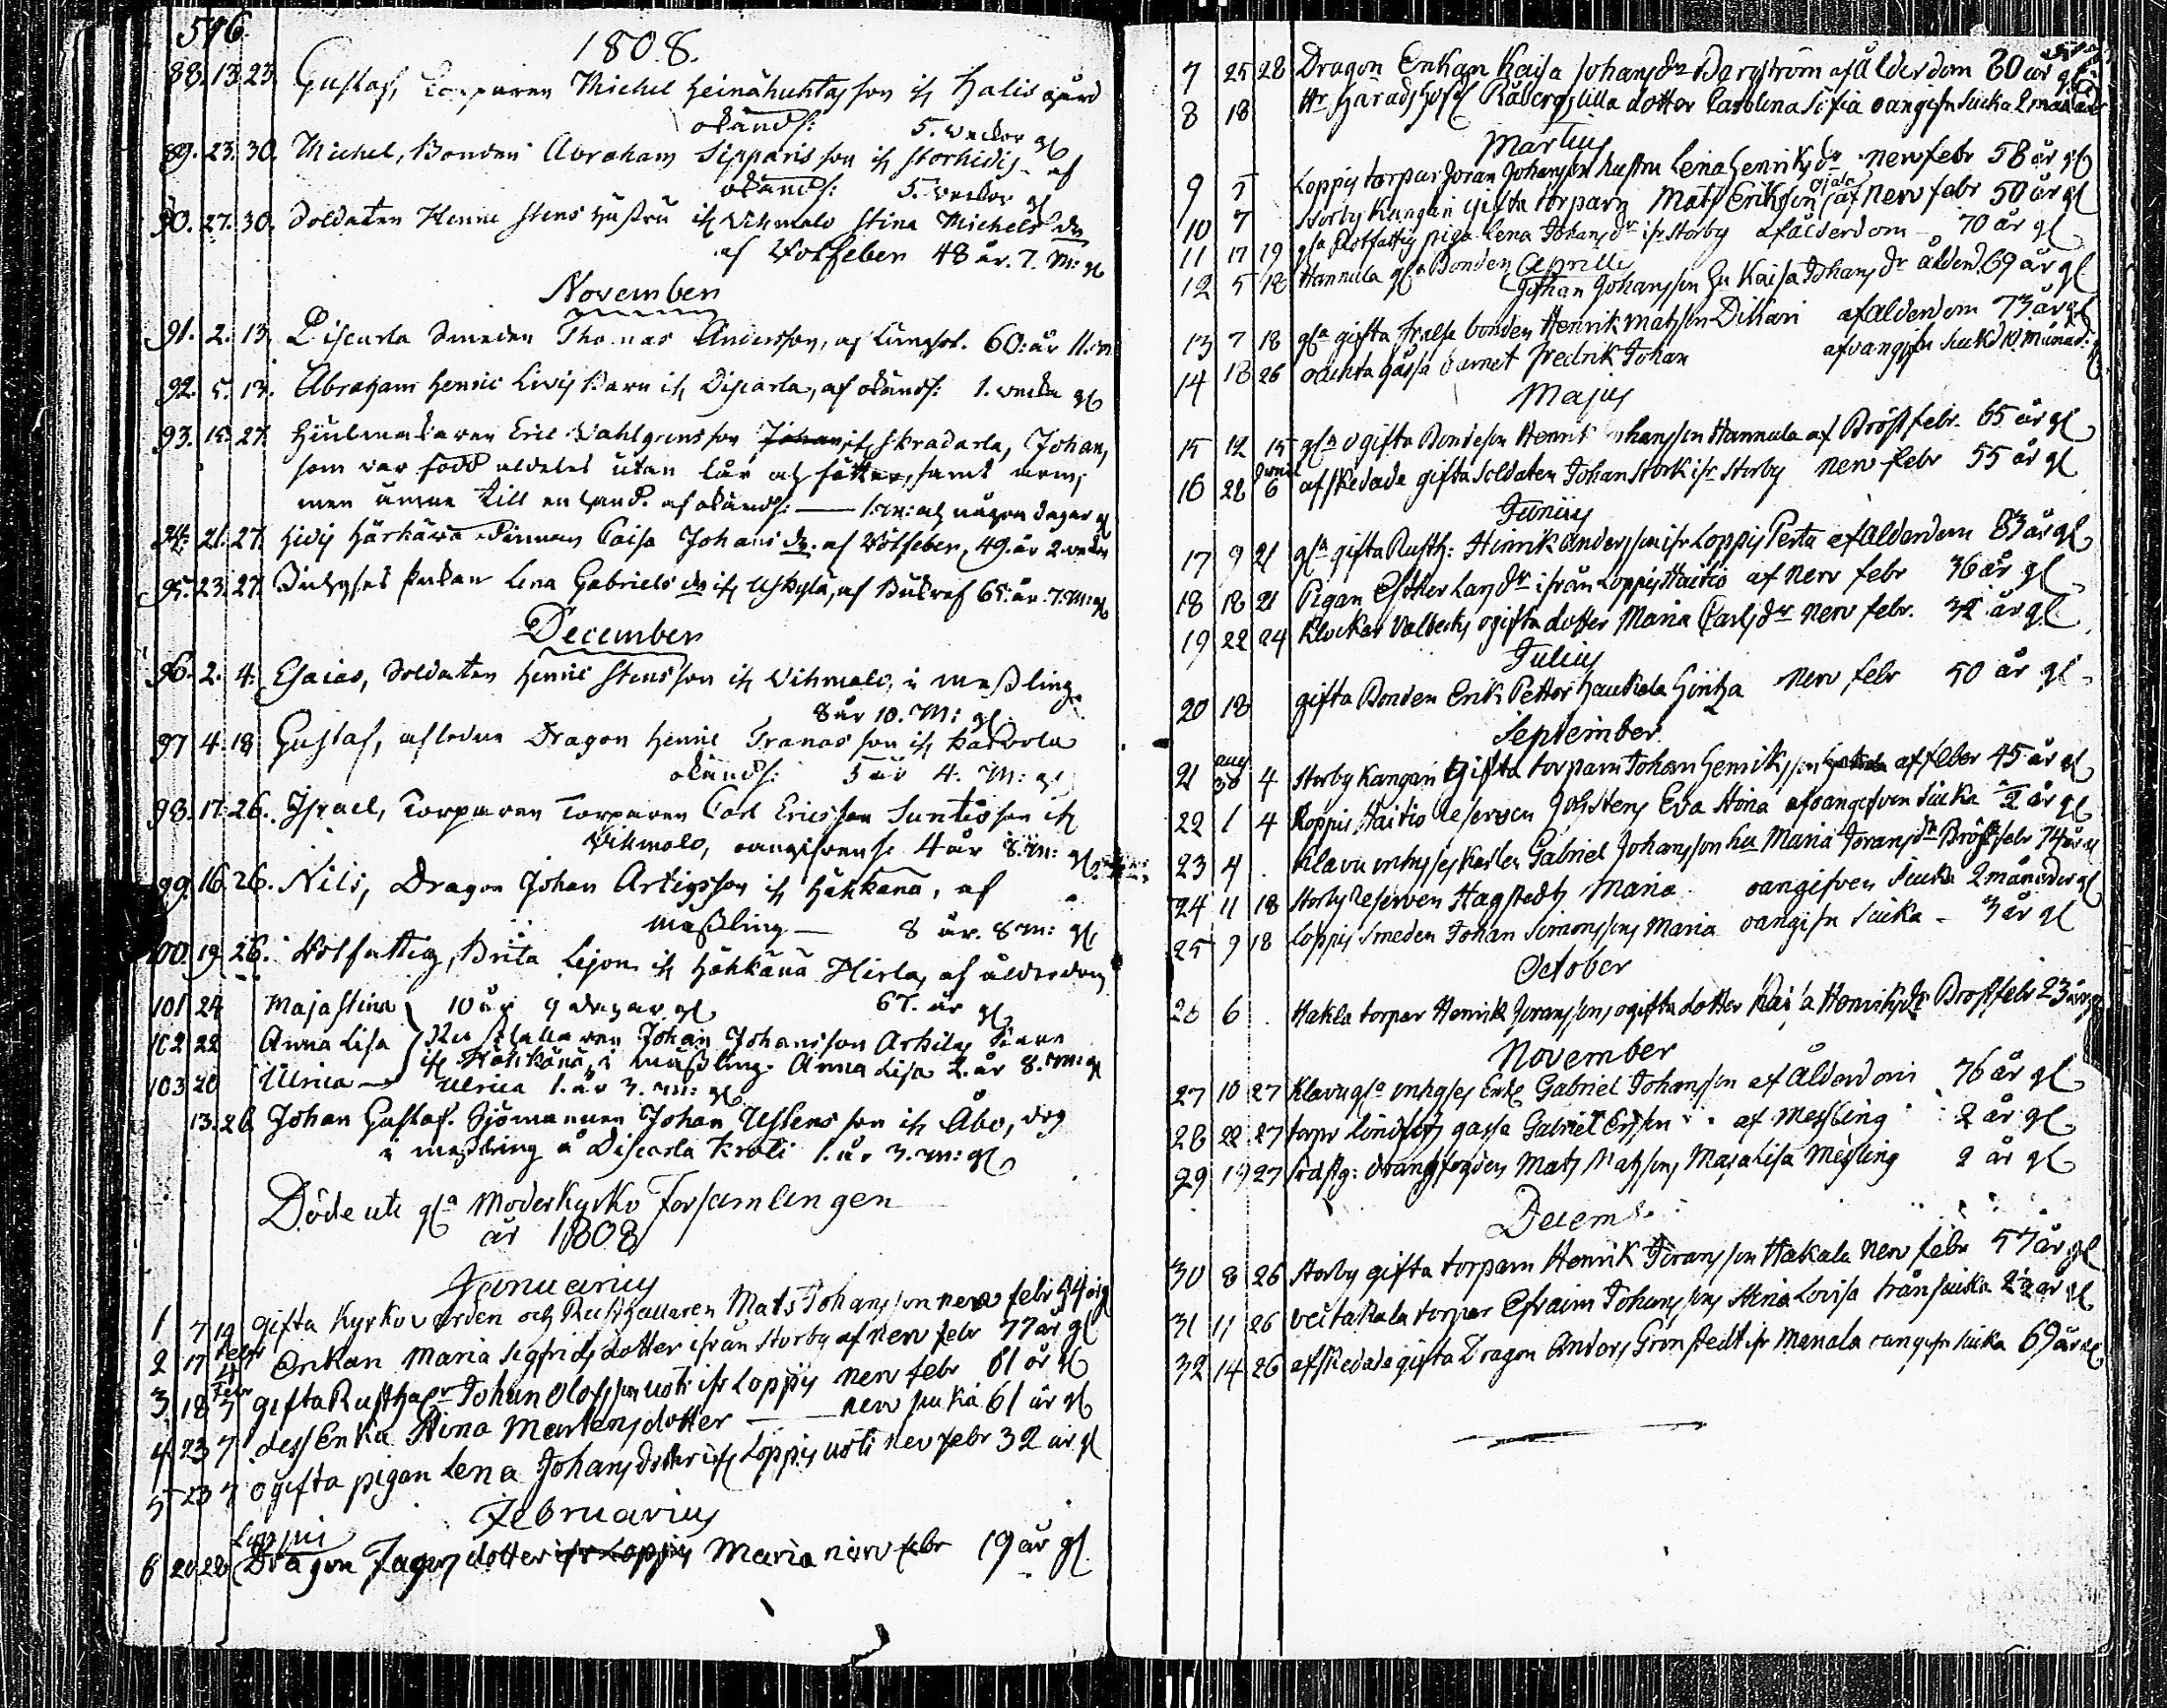 546.
1808.
88. 13. 23. Gustaf, Torparen Michel Heinähuhtas son ifr Halis gård
okänd s: 5. veckor gl
89. 23. 30. Michel, Bonden Abraham Sipparis son ifr Storhidis af
okänd s: 5. veckor gl
90. 27. 30. Soldaten Henric Stens hustru ifr Vihmalo Stina Michels dr
af Rötfeber 48 år. 7. M: gl
November
91. 2. 13. Piscarla Smeden Thomas Andersson, af Lungsot. 60: år 11. m
92. 5. 13. Abraham Henric Livis Barn ifr Piscarla, af okänd s: 1. vecka gl
93. 15. 27. Hjulmakaren Eric Vahlgrens son Johan, ifr Skradarla, Johan,
som var född aldeles utan lår och fötter, samt arm,
men ämne till en hand. af okänd s: — 1. m: och någon dagar gl
94. 21. 27. Hidis Härkäwä Qvinnan Caisa Johans dr. af Rötfeber, 49. år 2. veckor
95. 23. 27. Inhyses Enkan Lena Gabriels dr ifr Uskela, af Bukref 65. år. 7. M: gl
December
96. 2. 4. Esaias, Soldaten Henric Stens son ifr Vihmalo, i mäßling.
8 år 10. M: gl
97 4. 18 Gustaf, afledne Dragon Henric Tranas son ifr
okänd s: 5 år 4. M: gl
98. 17. 26. Israel, Torparen Torparen Carl Ericsson Suntis son ifr
Vihmalo, oangifven s: 4 år 8. M: gl
99. 16. 26. Nils, Dragon Johan Artigs son ifr Häkkänä, af
mäßling — 8 år. 8 m: gl
100. 19. 26. Rotfattig, Brita Lejon ifr Häkkänä Hirla, af ålderdom
67. år gl
101 24 Maja Stina 10 år 9 dagar gl
102 22 Anna Lisa Rusthållaren Johan Johansson Arkilas barn
ifr Häkkänä, i mäßling. Anna Lisa 2. år 8. m: gl
103 20 Ulrica — Ulrica 1. år 3. m: gl
13. 26 Johan Gustaf. Sjömannen Johan Ustens son ifr Åbo, dog
i mäßling å Piscarla Kroli 1. år 3. m: gl
Döde uti gla Moderkyrko Församlingen
år 1808
Januarius
1 7 19 gifta Kyrkovärden och Rusthållaren Mats Johansson nerv febr 54 år gl
2 17 Febr Enkan Maria Sigfrids dotter ifrån Storby af nerv febr 77 år gl
3 18 Febr 7 gifta Rusth Johan Olofsson Uoti ifr Loppis nerv febr 61 år gl
4 23 7 dess Enka Stina Mårtensdotter — nerv sjuka 61 år gl
5 23 7 ogifta pigan Lena Johansdotter ifr Loppis Uoti nerv febr 32 år gl
Februarius
Loppis
6 20 28 Dragon Jagers dotter ifr Loppis Maria nerv febr 19 år gl
7 25 28 Dragon Enkan Kaisa Johansdr Bargström af Ålderdom 80 år gl
8 18 Hr Häradshöfd Råbergs lilla dotter Carolina Sofia oangifn siuka 2 månader
Martius
9 5 Loppis torpar Joran Johansson hustru Lena Henriksdr nerv febr 58 år gl
10 7 Storby Kangan gifta torparn Mats Eriksson Ojala af Nerv febr 50 år gl
11 17 19 gla Rotfattig piga Lena Johansdr ifr Storby af ålderdom — 70 år gl
Aprilis
12 5 18 Hannula gla Bonden Johan Johansson Hu Kaisa Johansdr ålderd. 69 år gl
13 7 18 gla gifta frälse bonden Henrik Matsson Dihari af ålderdom 73 år gl
14 18 26 oächta gåssa barnet Fredrik Johan af oangifn siuka 10 månad:
Majus
15 12 15 gla ogifta Bondeson Henrik Johansson Hannula af Bröstfebr. 65 år gl
16 28 Juni 6 afskedade gifta Soldaten Johan Stork ifr Storby nerv febr 55 år gl
Junius
17 9 21 gla gifta Rusth: Henrik Andersson ifr Loppis Perta af Ålderdom 83 år gl
18 18 21 Pigan Esther Larsdr ifrån Loppis Haitio af Nerv febr 36 år gl
19 22 24 Klockar Valbecks ogifta dotter Maria Carlsdr nerv febr. 32 år gl
Julius
20 18 gifta Bonden Erik Petter Haukola nerv febr 50 år gl
September
21 aug 30 4 Storby Kangan gifta torparn Johan Henriksson af feber 45 år gl
22 1 4 Loppis Haitio Reserven Eva Stina af oangifven siuka 2 år gl
23 4 Klavu inhyses Karlen Gabriel Johansson hu Maria Joransdr Bröstfebr 74 år gl
24 11 18 Storby Reserven Hagstedts Maria oangifven siuka 2 månader gl
25 9 18 Loppis Smeden Johan Simonssons Maria oangifn siuka — 3 år gl
October
26 6 Hakla torpar Henrik Joranssons ogifta dotter Kaisa Henriksdr Bröstfebr 23 år gl
November
27 10 27 Klavu gla inhyses Enkl Gabriel Johansson af Ålderdom 76 år gl
28 22 27 torpr gåssa Gabriel Ersson af Messling 2 år gl
29 19 27 Mats Matssons Maja Lisa Messling 2 år gl
Decemb.
30 8 26 Storby gifta torparn Henrik Joransson Hakala nerv febr 57 år gl
31 11 26 torpar Efraim Johanssons Stina Lovisa trånsiuka 2½ år gl
32 14 26 afskedade gifta Dragon Anders Grönstedt ifr Manala oangifn siuka 69 år gl